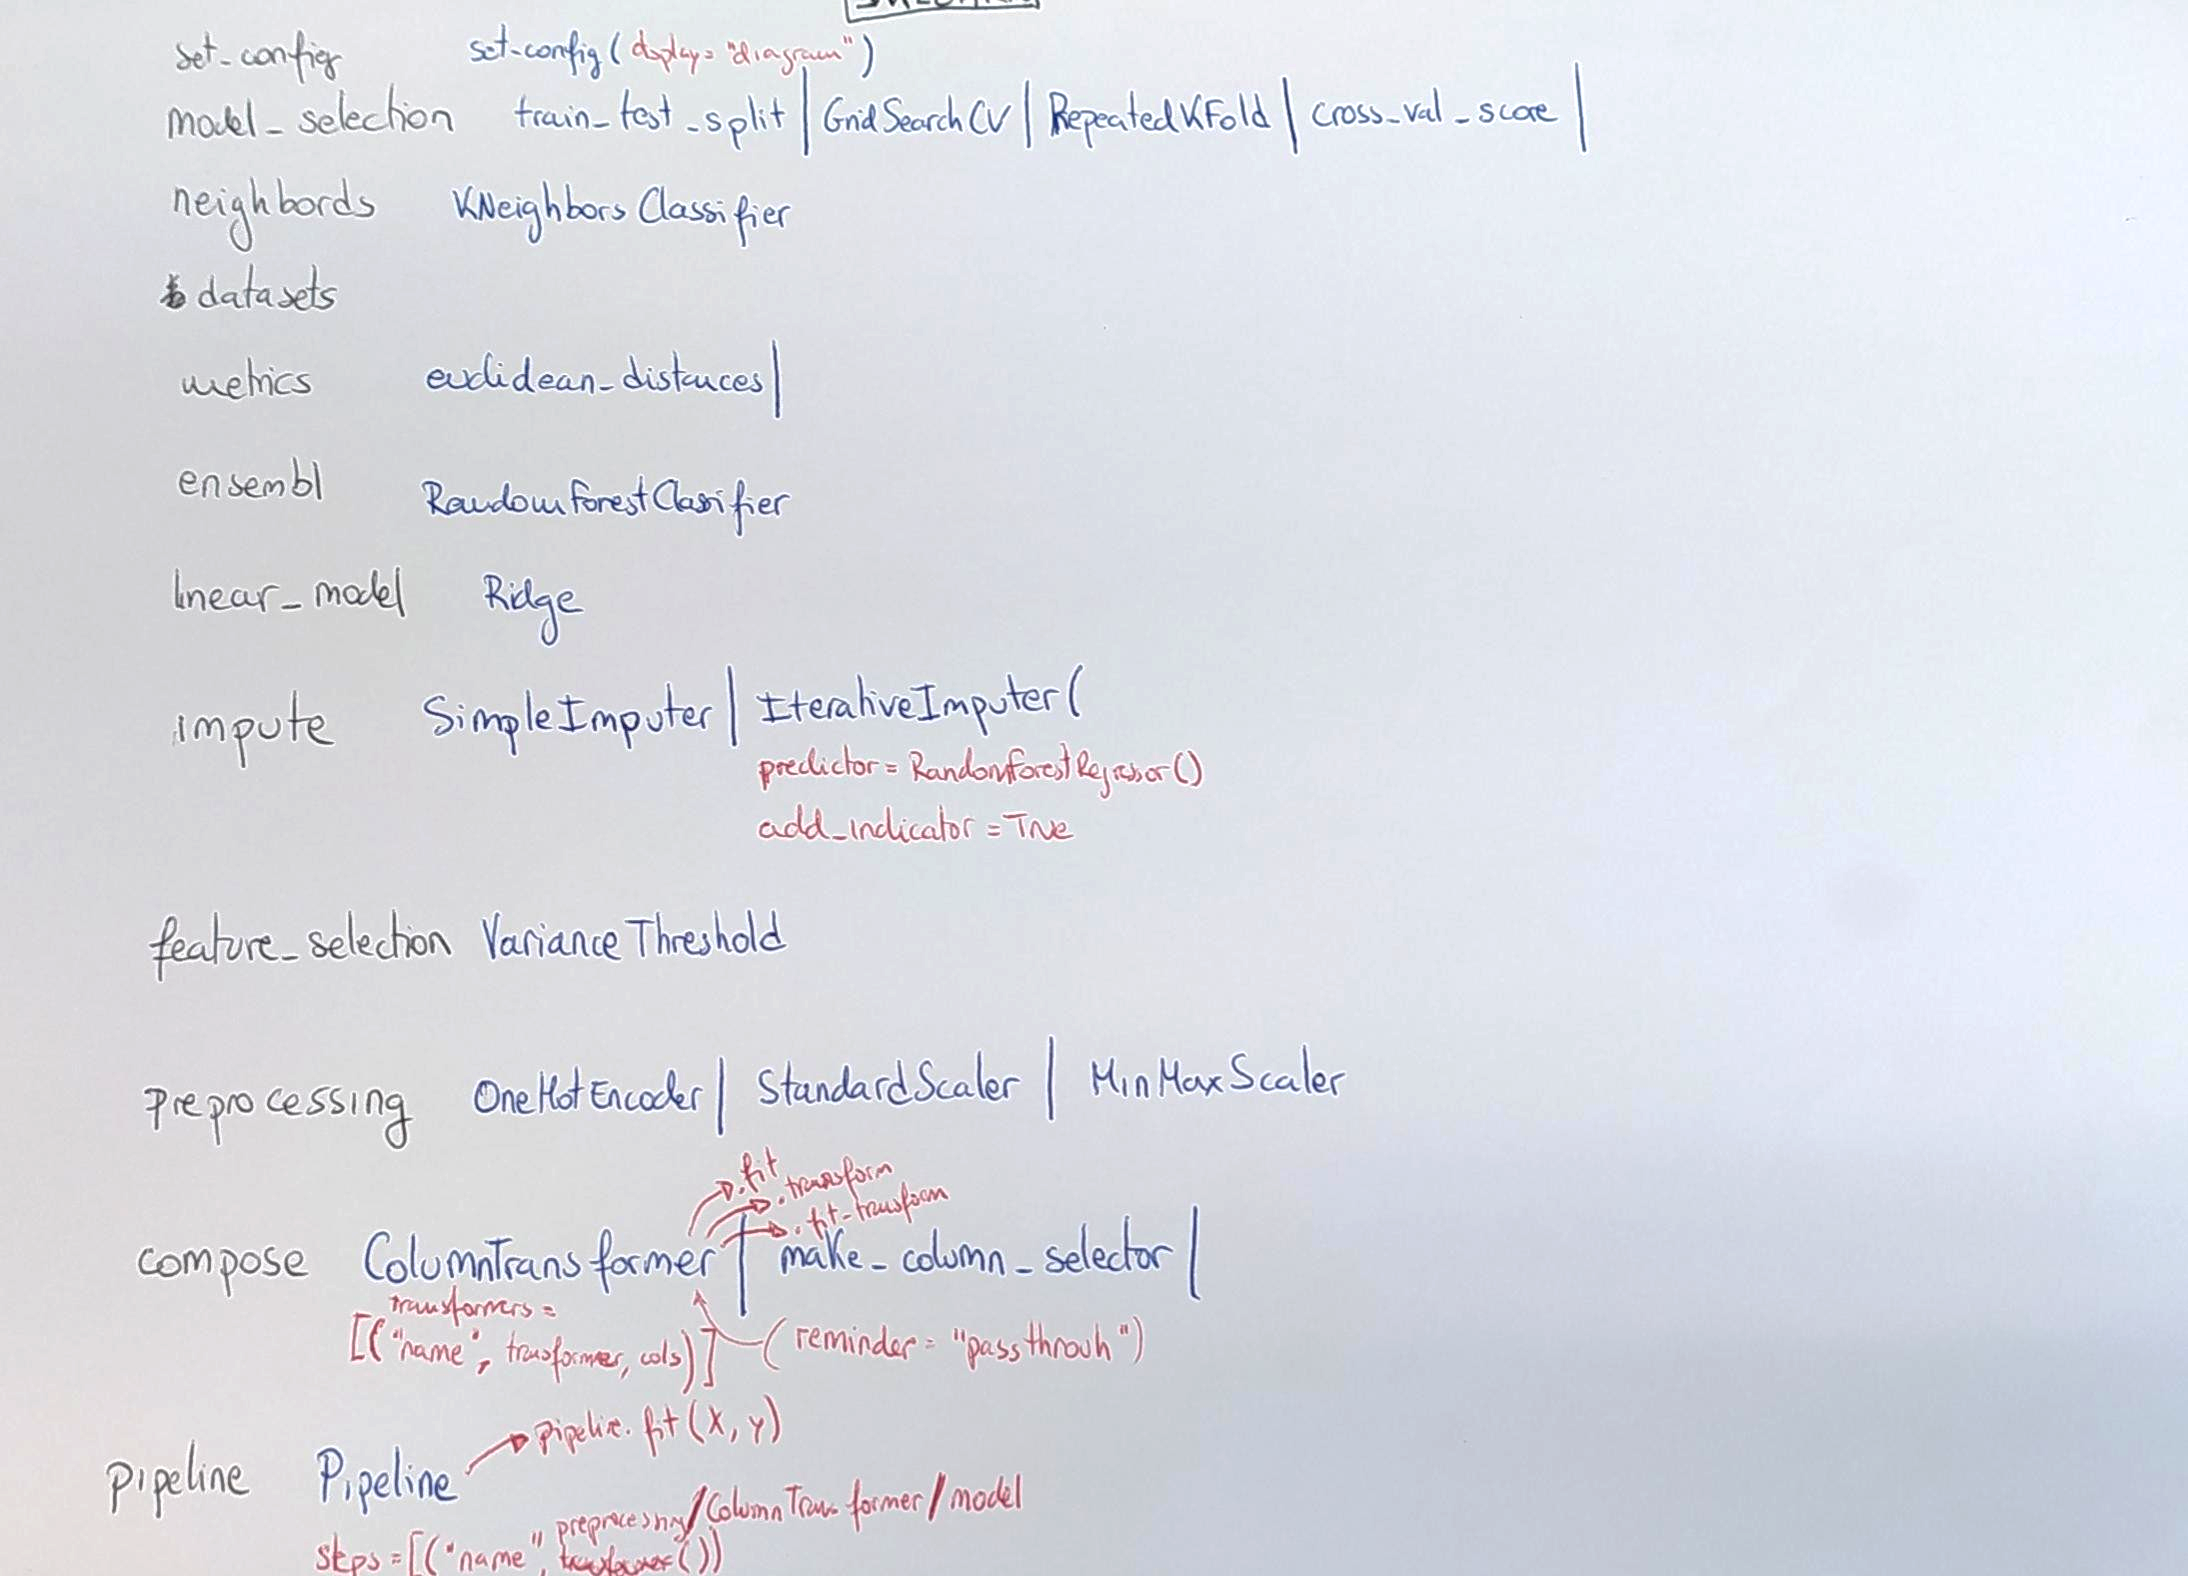 set_config set_config(display="diagram")
model_selection train_test_split | GridSearchCV | RepeatedKFold | cross_val_score |
neighbords KNeighborsClassifier
datasets
metrics euclidean_distances |
ensembl RandomForestClasifier
linear_model Ridge
impute SimpleImputer | IterativeImputer(
predictor = RandomForestRegressor()
add_indicator = True
feature_selection VarianceThreshold
preprocessing OneHotEncoder | StandardScaler | MinMaxScaler
.fit
.transform
.fit_transform
compose ColumnTransformer | make_column_selector |
transformers =
[("name", transformer, cols)] (reminder = "passthrouh")
pipeline.fit(X, y)
pipeline Pipeline
preprocessing/ColumnTransformer/model
steps = [("name", transformer())